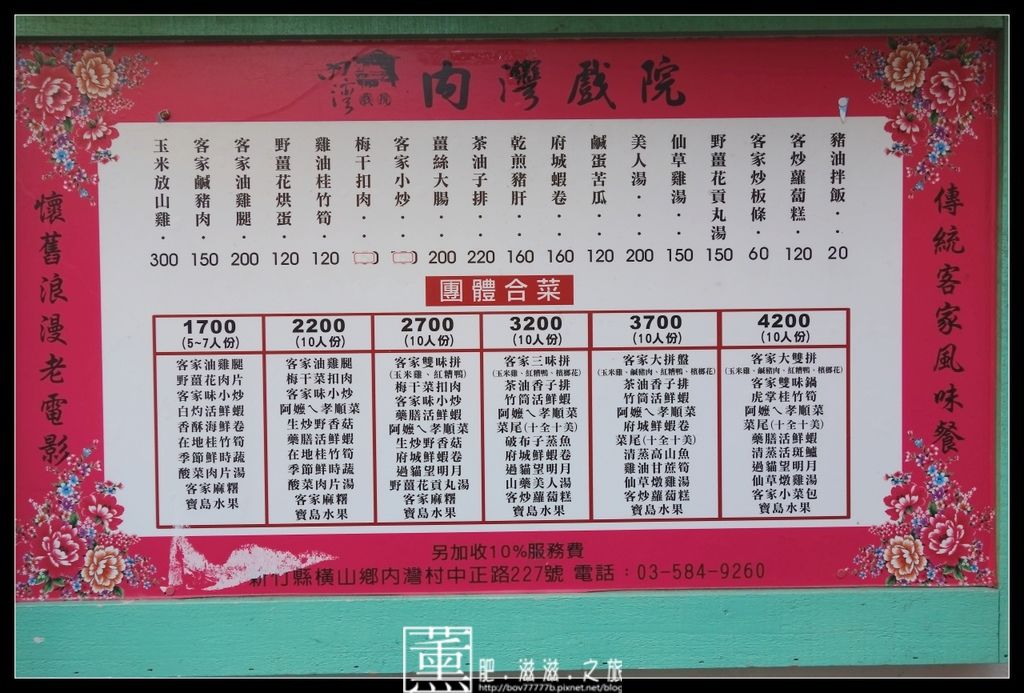 內灣戲院
內灣戲院
傳統客家風味餐
懷舊浪漫老電影
豬油拌飯・20
客炒蘿蔔糕・120
客家炒板條・60
野薑花貢丸湯150
仙草雞湯・150
美人湯・・200
鹹蛋苦瓜・120
府城蝦卷・160
乾煎豬肝・160
茶油子排・220
薑絲大腸・200
客家小炒・
梅干扣肉・
雞油桂竹筍・120
野薑花烘蛋・120
客家油雞腿・200
客家鹹豬肉・150
玉米放山雞・300
團體合菜
1700
(5~7人份)
客家油雞腿
野薑花肉片
客家味小炒
白灼活鮮蝦
香酥海鮮卷
在地桂竹筍
季節鮮時蔬
酸菜肉片湯
客家麻糬
寶島水果
2200
(10人份)
客家油雞腿
梅干菜扣肉
客家味小炒
阿嬤ㄟ孝順菜
生炒野香菇
藥膳活鮮蝦
在地桂竹筍
季節鮮時蔬
酸菜肉片湯
客家麻糬
寶島水果
2700
(10人份)
客家雙味拼
(玉米雞、紅糟鴨)
梅干菜扣肉
客家味小炒
藥膳活鮮蝦
阿嬤ㄟ孝順菜
生炒野香菇
府城鮮蝦卷
過貓望明月
野薑花貢丸湯
客家麻糬
寶島水果
3200
(10人份)
客家三味拼
(玉米雞、紅糟鴨、檳榔花)
茶油香子排
竹筒活鮮蝦
阿嬤ㄟ孝順菜
菜尾(十全十美)
破布子蒸魚
府城鮮蝦卷
過貓望明月
山藥美人湯
客炒蘿蔔糕
寶島水果
3700
(10人份)
客家大拼盤
(玉米雞、鹹豬肉、紅糟鴨、檳榔花)
茶油香子排
竹筒活鮮蝦
阿嬤ㄟ孝順菜
府城鮮蝦卷
菜尾(十全十美)
清蒸高山魚
雞油甘蔗筍
仙草燉雞湯
客炒蘿蔔糕
寶島水果
4200
(10人份)
客家大雙拼
(玉米雞、鹹豬肉、紅糟鴨、檳榔花)
客家雙味鍋
虎掌桂竹筍
阿嬤ㄟ孝順菜
菜尾(十全十美)
藥膳活鮮蝦
清蒸活斑鱸
過貓望明月
仙草燉雞湯
客家小菜包
寶島水果
另加收10%服務費
新竹縣橫山鄉內灣村中正路227號 電話：03-584-9260
薰 肥．滋滋．之旅
http://bov77777b.pixnet.net/blog